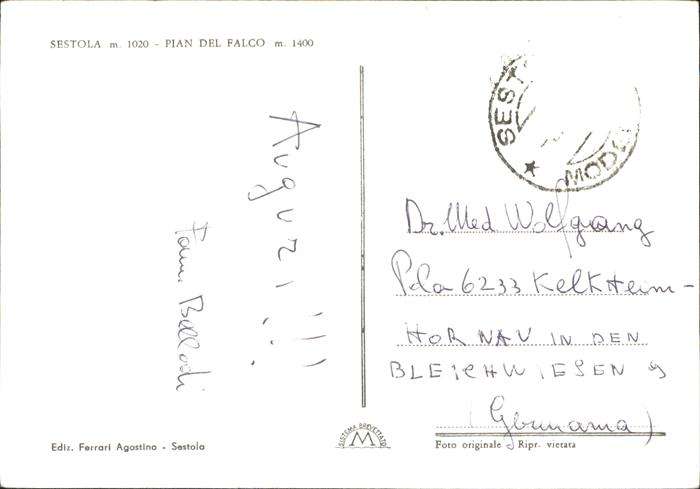 SESTOLA m. 1020 - PIAN DEL FALCO m. 1400
Auguri!!!
Fam. Bellodi
SEST
MODE
Dr. Med Wolfgang
6233 Kelkheim-
HORNAU IN DEN
BLEICHWIESEN 9
(Germania)
Ediz. Ferrari Agostino - Sestola
SISTEMA BREVETTATO
M
Foto originale - Ripr. vietata